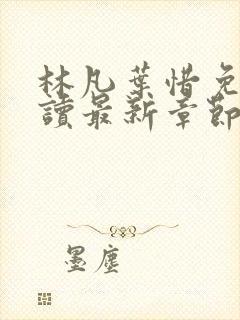 林凡葉惜免
讀最新章節
墨塵